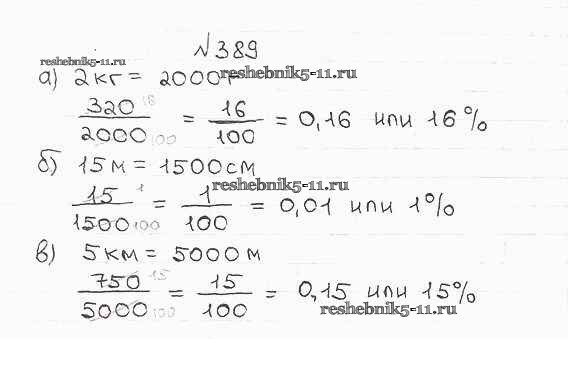 №389
reshebnik5-11.ru
а) 2кг = 2000г
reshebnik5-11.ru
320 16 / 2000 100 = 16 / 100 = 0,16 или 16%
б) 15м = 1500см
reshebnik5-11.ru
15 1 / 1500 100 = 1 / 100 = 0,01 или 1%
в) 5км = 5000м
750 15 / 5000 100 = 15 / 100 = 0,15 или 15%
reshebnik5-11.ru